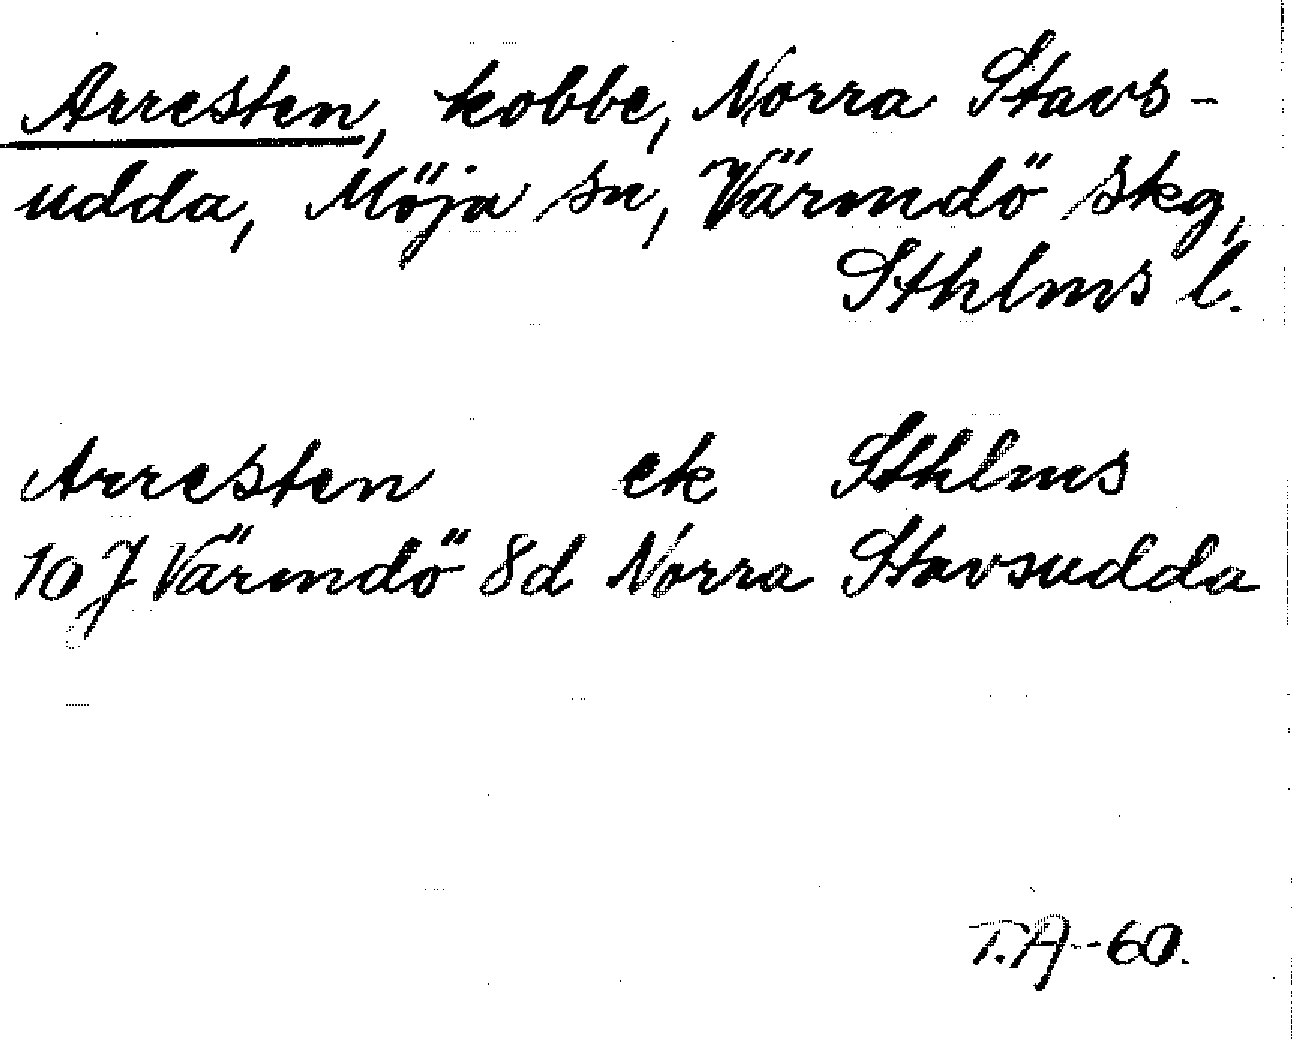 Arresten, kobbe, Norra Stavs-
udda, Möja sn, Värmdö skg,
Sthlms l.
Arresten ek Sthlms
10 J Värmdö 8d Norra Stavsudda
T.A-60.